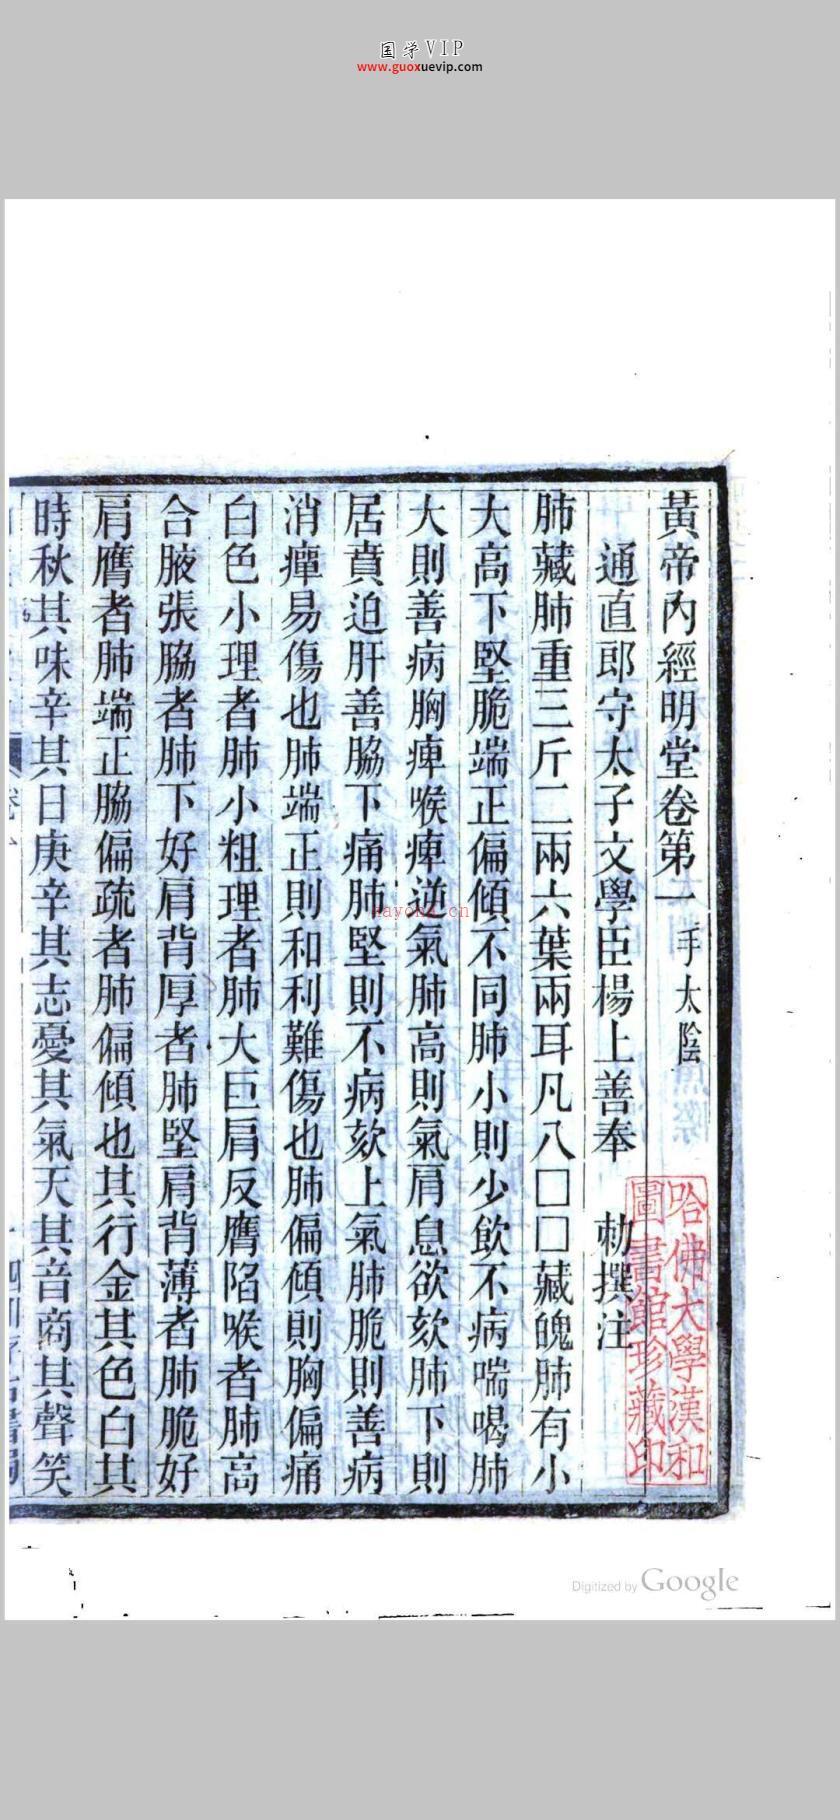 国学VIP
www.guoxuevip.com
黃帝內經明堂卷第一 手太陰
通直郎守太子文學臣楊上善奉 勅撰注
肺藏肺重三斤二兩六葉兩耳凡八□□藏魄肺有小
大高下堅脆端正偏傾不同肺小則少飲不病喘喝肺
大則善病胸痺喉痺逆氣肺高則氣肩息欲欬肺下則
居賁迫肝善脇下痛肺堅則不病欬上氣肺脆則善病
消癉易傷也肺端正則和利難傷也肺偏傾則胸偏痛
白色小理者肺小粗理者肺大巨肩反膺陷喉者肺高
合腋張脇者肺下好肩背厚者肺堅肩背薄者肺脆好
肩膺者肺端正脇偏疏者肺偏傾也其行金其色白其
時秋其味辛其日庚辛其志憂其氣天其音商其聲哭
哈佛大學漢和
圖書館珍藏印
nayona.cn
Digitized by Google